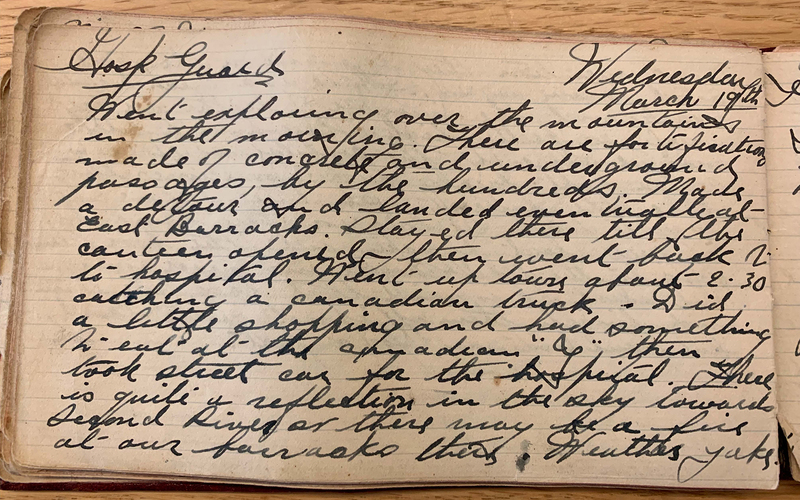 Hosp Guard
Wednesday
March 19th
Went exploring over the mountains
in the morning. There are fortifications
made of concrete and underground
passages, by the hundreds. Made
a detour and landed eventually at
East Barracks. Stayed there till the
canteen opened, then went back
to hospital. Went up town about 2.30
catching a canadian truck. Did
a little shopping and had something
to eat at the canadian "Y" then
took street car for the hospital. There
is quite a reflection in the sky towards
Second River or there may be a fire
at our barracks there. Weather